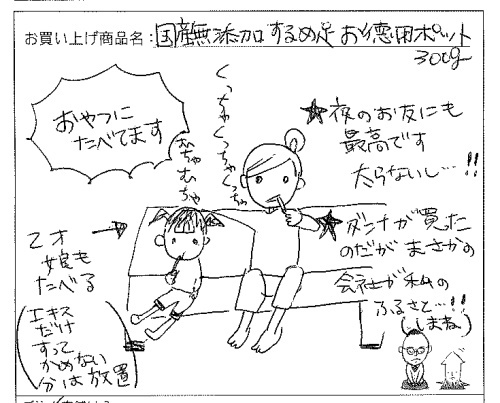 お買い上げ商品名：国産無添加するめ足 お徳用ポット
300g
おやつに
たべてます
くっちゃくっちゃくっちゃ
むちゃむちゃ
★夜のお友にも
最高です
太らないし…!!
★ダンナが買った
のだがまさかの
会社が私の
ふるさと…!!
(しまね)
2才
娘も
たべる
(エキス
だけ
すって
かめない
分は放置)